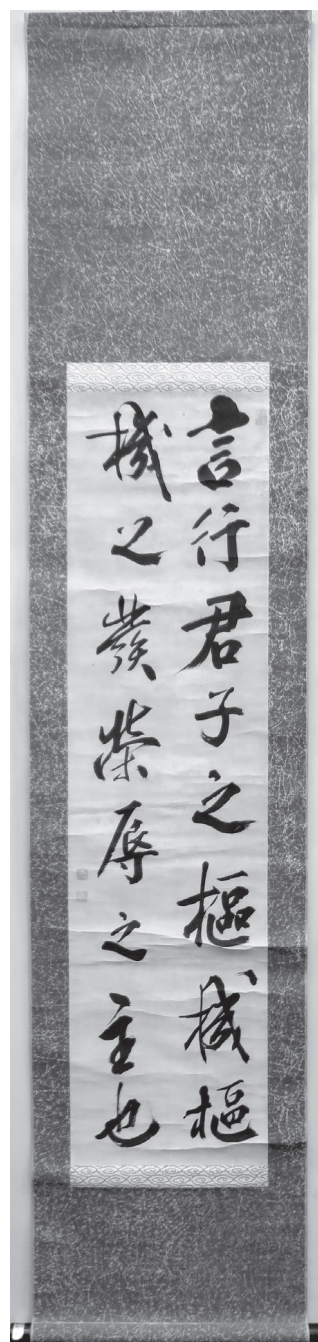 言行君子之樞機樞
機之發榮辱之主也